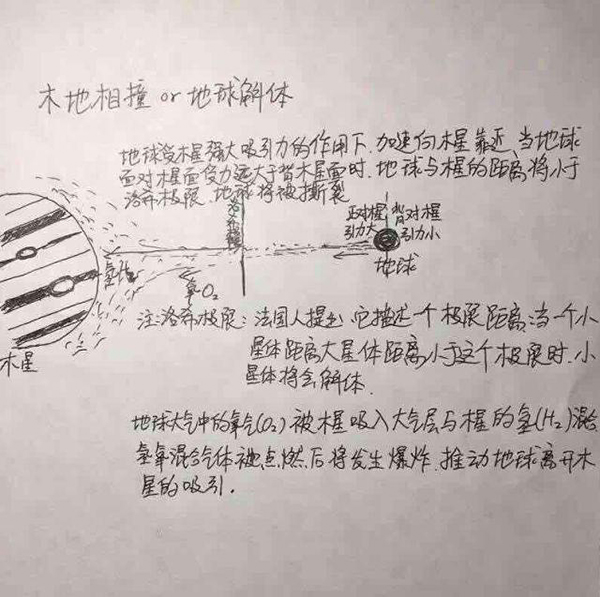 木地相撞 or 地球解体
地球受木星强大吸引力的作用下,加速向木星靠近,当地球
面对木星面受力远大于背木星面时,地球与木星的距离将小于
洛希极限,地球将被撕裂
洛希极限
正对木星
引力大
背对木星
引力小
地球
氢H₂
氧O₂
木星
注:洛希极限:法国人提出,它描述一个极限距离:当一个小
星体距离大星体距离小于这个极限时,小
星体将会解体.
地球大气中的氧气(O₂)被木星吸入大气层与木星的氢(H₂)混合
氢氧混合气体被点燃后将发生爆炸,推动地球离开木
星的吸引.